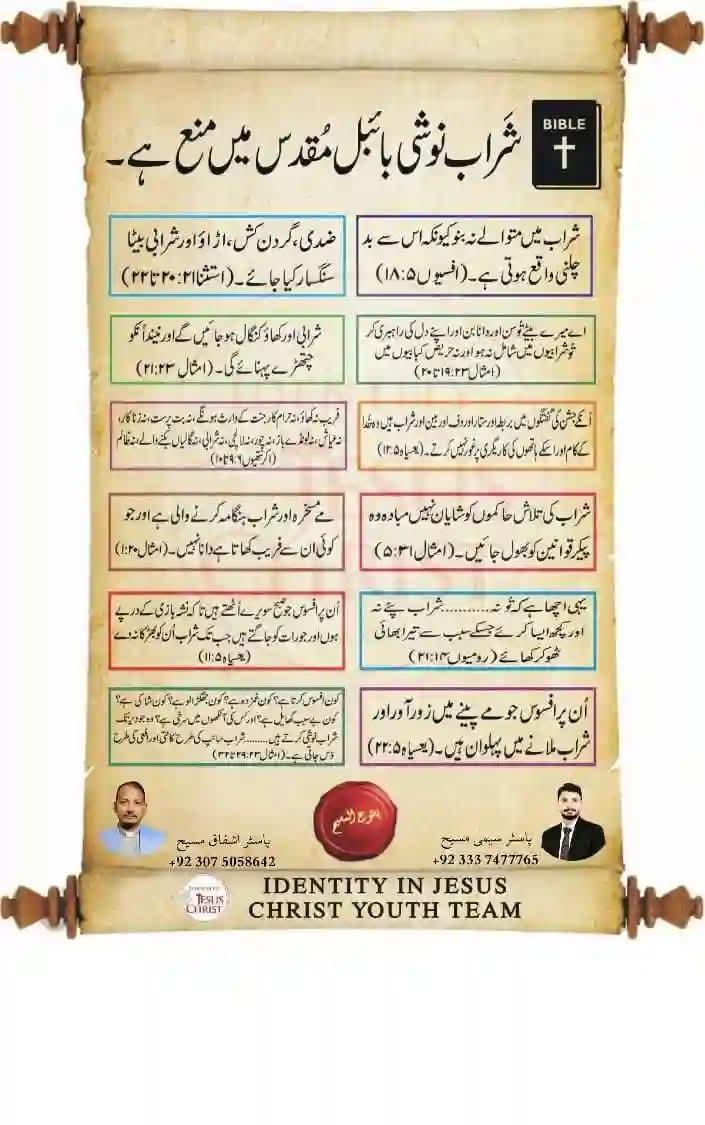 BIBLE
شَراب نوشی بائبل مُقدس میں منع ہے۔
شراب میں متوالے نہ بنو کیونکہ اس سے بد
چلنی واقع ہوتی ہے۔ (افسیوں ۱۸:۵)
ضدی، گردن کش، اڑاؤ اور شرابی بیٹا
سنگسار کیا جائے۔ (استثنا ۲۰:۲۱ تا ۲۲)
اے میرے بیٹے تُو سن اور دانا بن اور اپنے دل کی راہبری کر
تُو شرابیوں میں شامل نہ ہو اور نہ حریص کبابیوں میں
(امثال ۱۹:۲۳ تا ۲۰)
شرابی اور کھاؤ کنگال ہو جائیں گے اور نیند اُنکو
چتھڑے پہنائے گی۔ (امثال ۲۱:۲۳)
اُنکے جشن کی محفلوں میں بربط اور ستار اور دف اور بین اور شراب ہیں وہ خُدا
کے کام اور اسکے ہاتھوں کی کاریگری پر غور نہیں کرتے۔ (یسعیاہ ۱۲:۵)
فریب نہ کھاؤ، نہ حرام کار جنت کے وارث ہونگے، نہ بت پرست، نہ زناکار،
نہ عیاش، نہ لونڈے باز، نہ چور، نہ لالچی، نہ شرابی، نہ گالیاں بکنے والے، نہ ظالم
(۱ کرنتھیوں ۹:۶ تا ۱۰)
شراب کی تلاش حاکموں کو شایان نہیں مبادہ وہ
پیکر قوانین کو بھول جائیں۔ (امثال ۵:۳۱)
مے مسخرہ اور شراب ہنگامہ کرنے والی ہے اور جو
کوئی ان سے فریب کھاتا ہے دانا نہیں۔ (امثال ۱:۲۰)
یہی اچھا ہے کہ تُو نہ..........شراب پئے نہ
اور کچھ ایسا کرئے جسکے سبب سے تیرا بھائی
ٹھوکر کھائے (رومیوں ۲۱:۱۴)
اُن پر افسوس جو صبح سویرے اُٹھتے ہیں تاکہ نشہ بازی کے درپے
ہوں اور جو رات کو جاگتے ہیں جب تک شراب اُن کو بھڑکا نہ دے
(یسعیاہ ۱۱:۵)
اُن پر افسوس جو مے پینے میں زور آور اور
شراب ملانے میں پہلوان ہیں۔ (یسعیاہ ۲۲:۵)
کون افسوس کرتا ہے؟ کون غمزدہ ہے؟ کون جھگڑالو ہے؟ کون شاکی ہے؟
کون بے سبب گھایل ہے؟ اور کس کی آنکھوں میں سرخی ہے؟ وہ جو دیر تک
شراب نوشی کرتے ہیں.........شراب سانپ کی طرح کاٹتی اور افعی کی طرح
ڈس جاتی ہے۔ (امثال ۲۹:۲۳ تا ۳۲)
یسوع المسیح
پاسٹر سیمی مسیح
+92 333 7477765
پاسٹر اشفاق مسیح
+92 307 5058642
JESUS
CHRIST
IDENTITY IN JESUS
CHRIST YOUTH TEAM